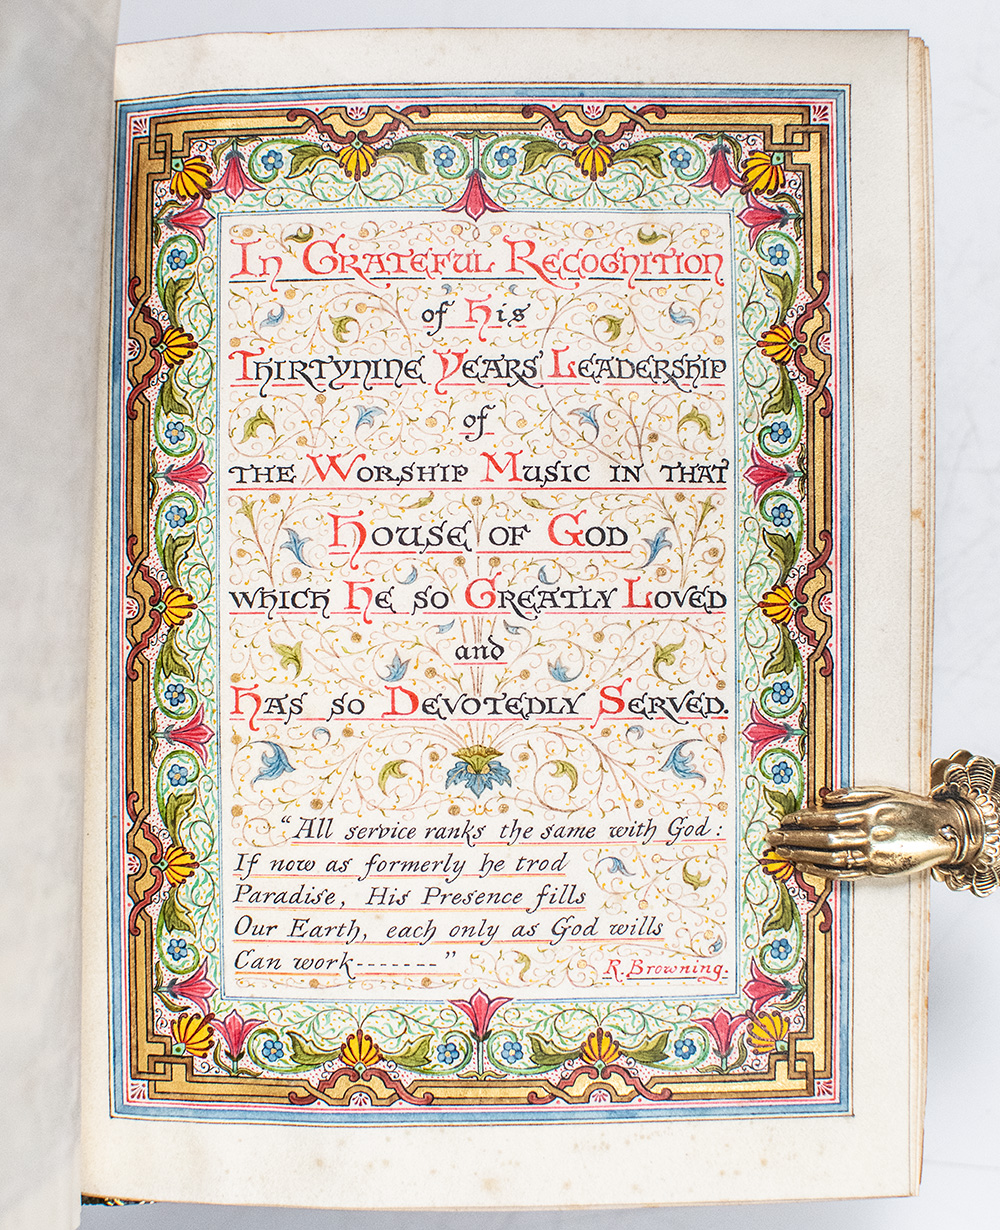 In Grateful Recognition
of His
Thirtynine Years' Leadership
of
the Worship Music in that
House of God
which He so Greatly Loved
and
Has so Devotedly Served.
"All service ranks the same with God:
If now as formerly he trod
Paradise, His Presence fills
Our Earth, each only as God wills
Can work-------"
R. Browning.